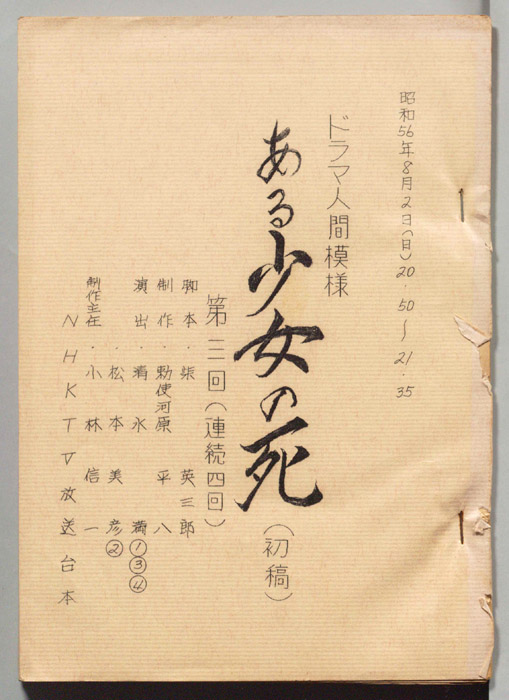 昭和56年8月2日(日)20 50〜21.35
ドラマ人間模様
ある少女の死(初稿)
第三回(連続四回)
脚本・柴 英三郎
制作・勅使河原 平八
演出・清水 満①③④
・松本 美彦②
制作主任・小林 信一
NHKTV放送台本